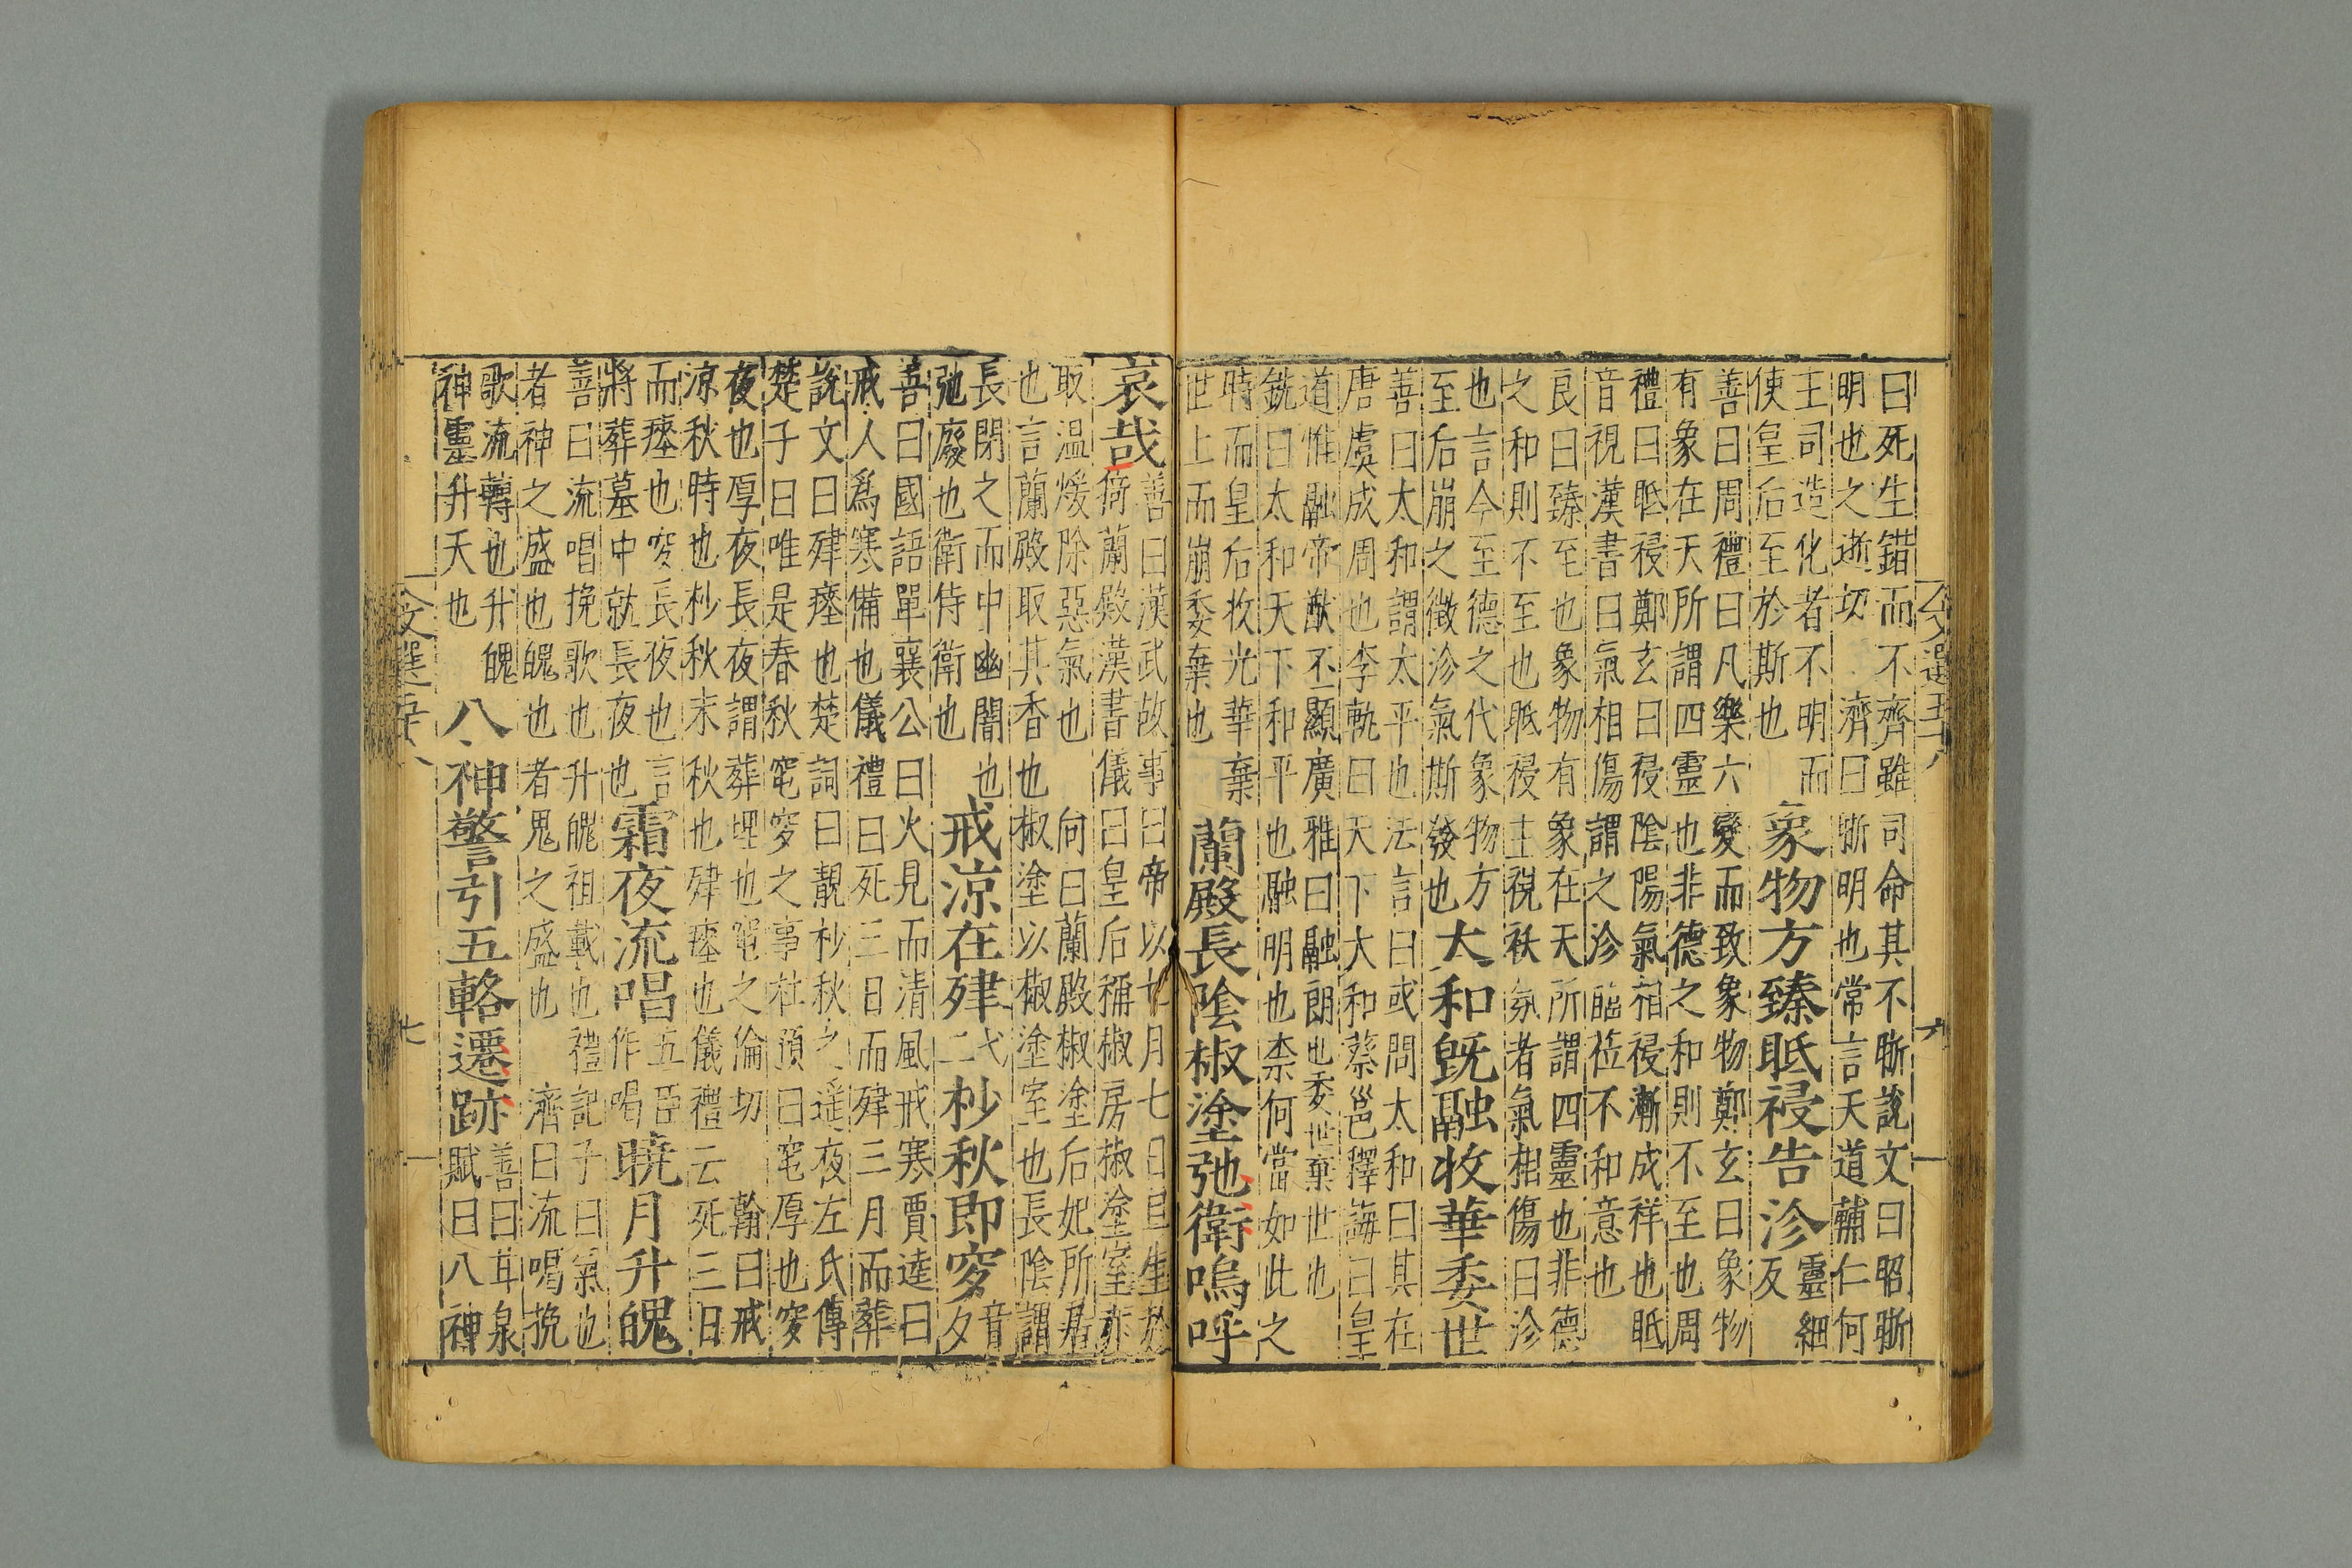 文選五十八
六
曰死生錯而不齊雖司命其不晣說文曰昭晣
明也之逝切　濟曰晣明也常言天道輔仁何
王司造化者不明而
使皇后至於斯也
象物方臻眂祲告沴
靈細
反
善曰周禮曰凡樂六變而致象物鄭玄曰象物
有象在天所謂四靈也非德之和則不至也周
禮曰眂祲鄭玄曰祲陰陽氣相祲漸成祥也眂
音視漢書曰氣相傷謂之沴臨莅不和意也
良曰臻至也象物有象在天所謂四靈也非德
之和則不至也眂祲主視祅氛者氣相傷曰沴
也言今至德之代象物方
至后崩之徵沴氣斯發也
太和旣融收華委世
善曰太和謂太平也法言曰或問太和曰其在
唐虞成周也李軌曰天下大和蔡邕釋誨曰皇
道惟融帝猷丕顯廣雅曰融朗也委世棄世也
銑曰太和天下和平也融明也柰何當如此之
時而皇后收光華棄
世上而崩委棄也
蘭殿長陰椒塗弛衛嗚呼
哀哉
善曰漢武故事曰帝以七月七日旦生於
猗蘭殿漢書儀曰皇后稱椒房椒塗室亦
取温煖除惡氣也　向曰蘭殿椒塗后妃所居
也言蘭殿取其香也椒塗以椒塗室也長陰謂
長閉之而中幽闇也
弛廢也衛侍衛也
戒涼在肂
弋
二
杪秋即穸
音
夕
善曰國語單襄公曰火見而清風戒寒賈逵曰
戒人爲寒備也儀禮曰死三日而肂三月而葬
說文曰肂瘞也楚詞曰靚杪秋之遥夜左氏傳
楚子曰唯是春秋窀穸之事杜預曰窀厚也穸
夜也厚夜長夜謂葬埋也窀之倫切　翰曰戒
涼秋時也杪秋末秋也肂瘞也儀禮云死三日
而瘞也穸長夜也言
將葬墓中就長夜也
霜夜流唱
五臣
作喝
曉月升魄
善曰流唱挽歌也升魄祖載也禮記子曰氣也
者神之盛也魄也者鬼之盛也　濟曰流喝挽
歌流轉也升魄
神靈升天也
八神警引五輅遷跡
善曰甘泉
賦曰八神
文選五十八
七